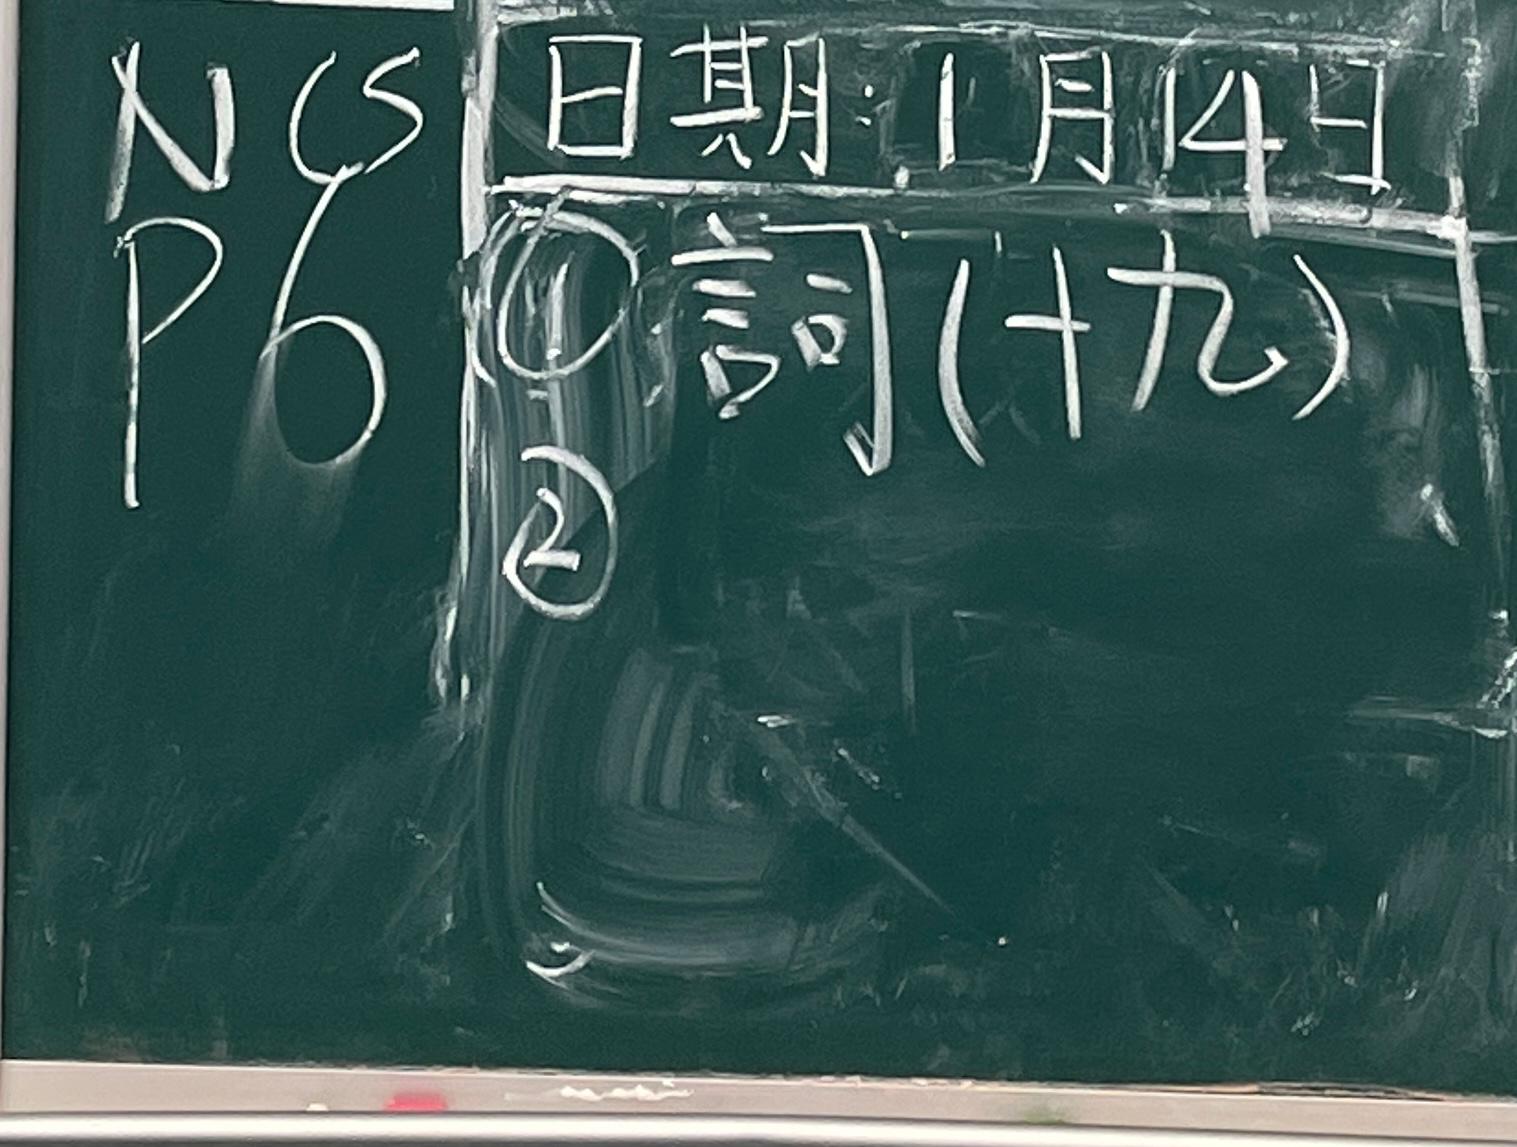 NCS
P6
日期:1月14日
① 詞(十九)
②